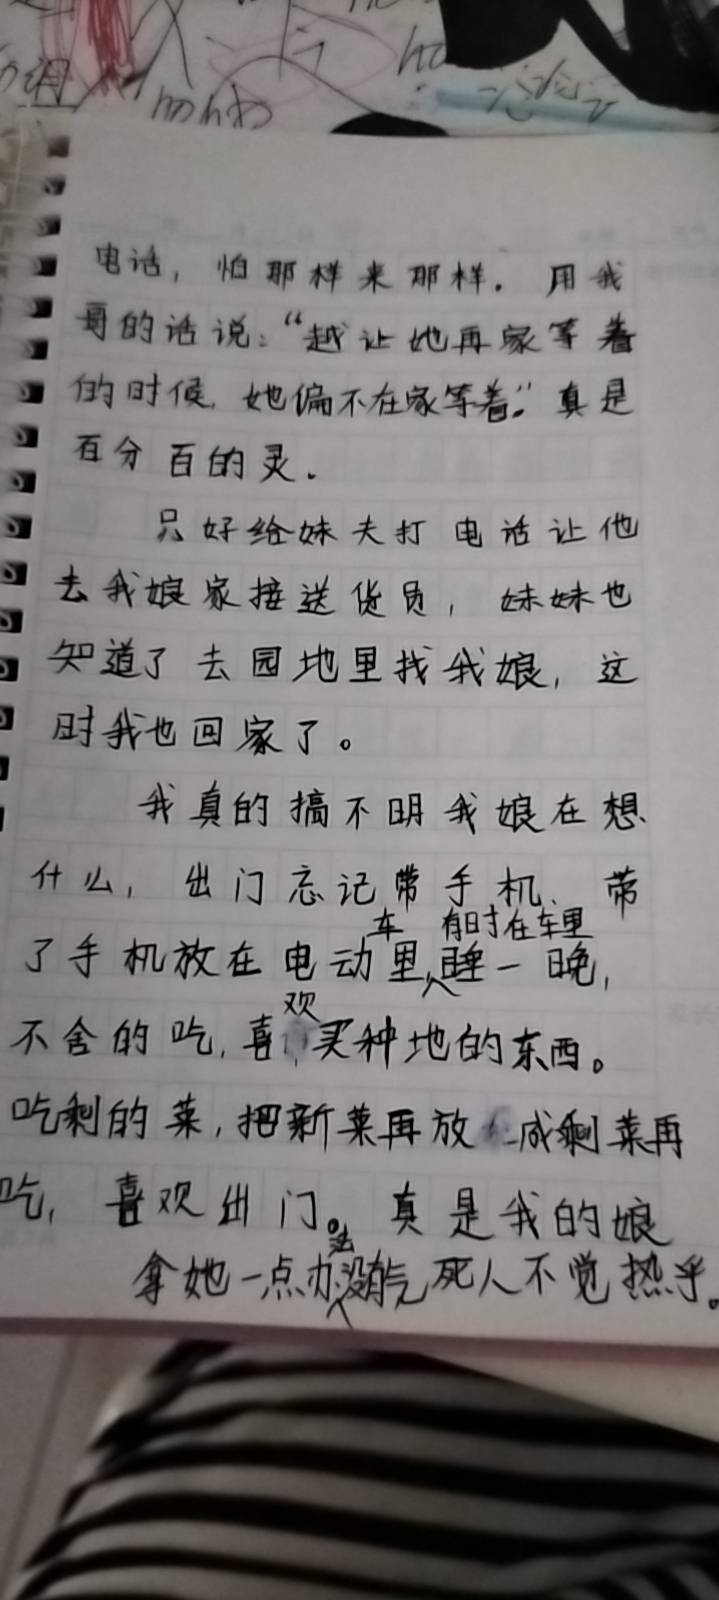 电话，怕那样来那样. 用我
哥的话说：“越让她再家等着
的时候, 她偏不在家等着.” 真是
百分百的灵.
只好给妹夫打电话让他
去我娘家接送货员，妹妹也
知道了去园地里找我娘，这
时我也回家了。
我真的搞不明我娘在想
什么，出门忘记带手机、带
车 有时在车里
了手机放在电动里睡一晚,
欢
不舍的吃,喜买种地的东西。
吃剩的菜,把新菜再放成剩菜再
吃，喜欢出门。真是我的娘
法
拿她一点办没有气死人不觉热乎。